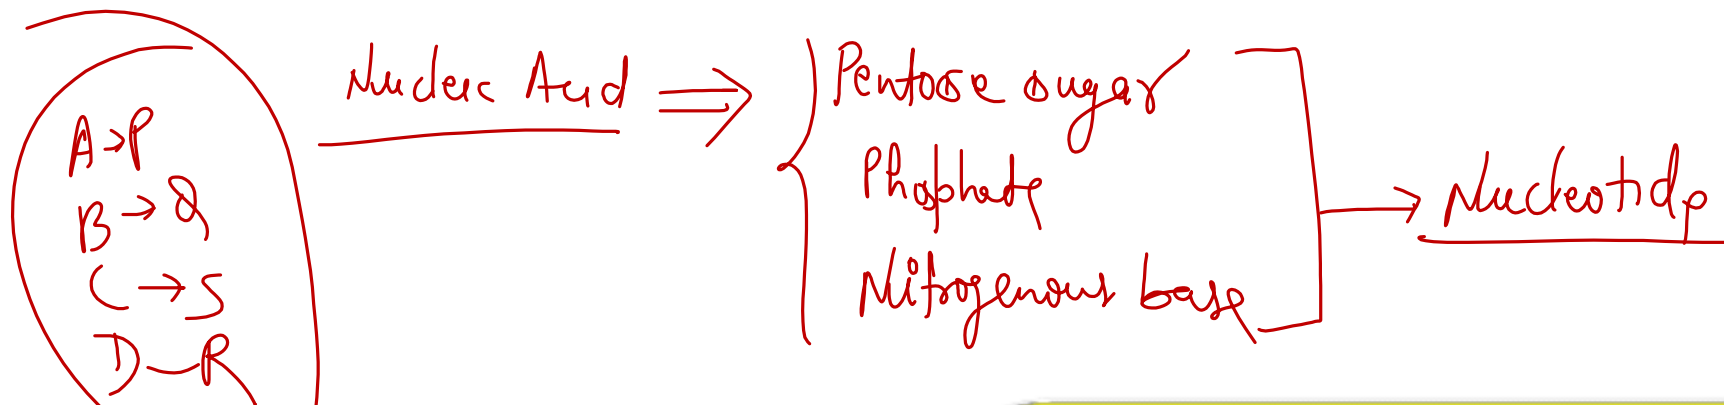 A → P
B → Q
C → S
D — R
Nucleic Acid ⇒
Pentose sugar
Phosphate
Nitrogenous base
→ Nucleotide